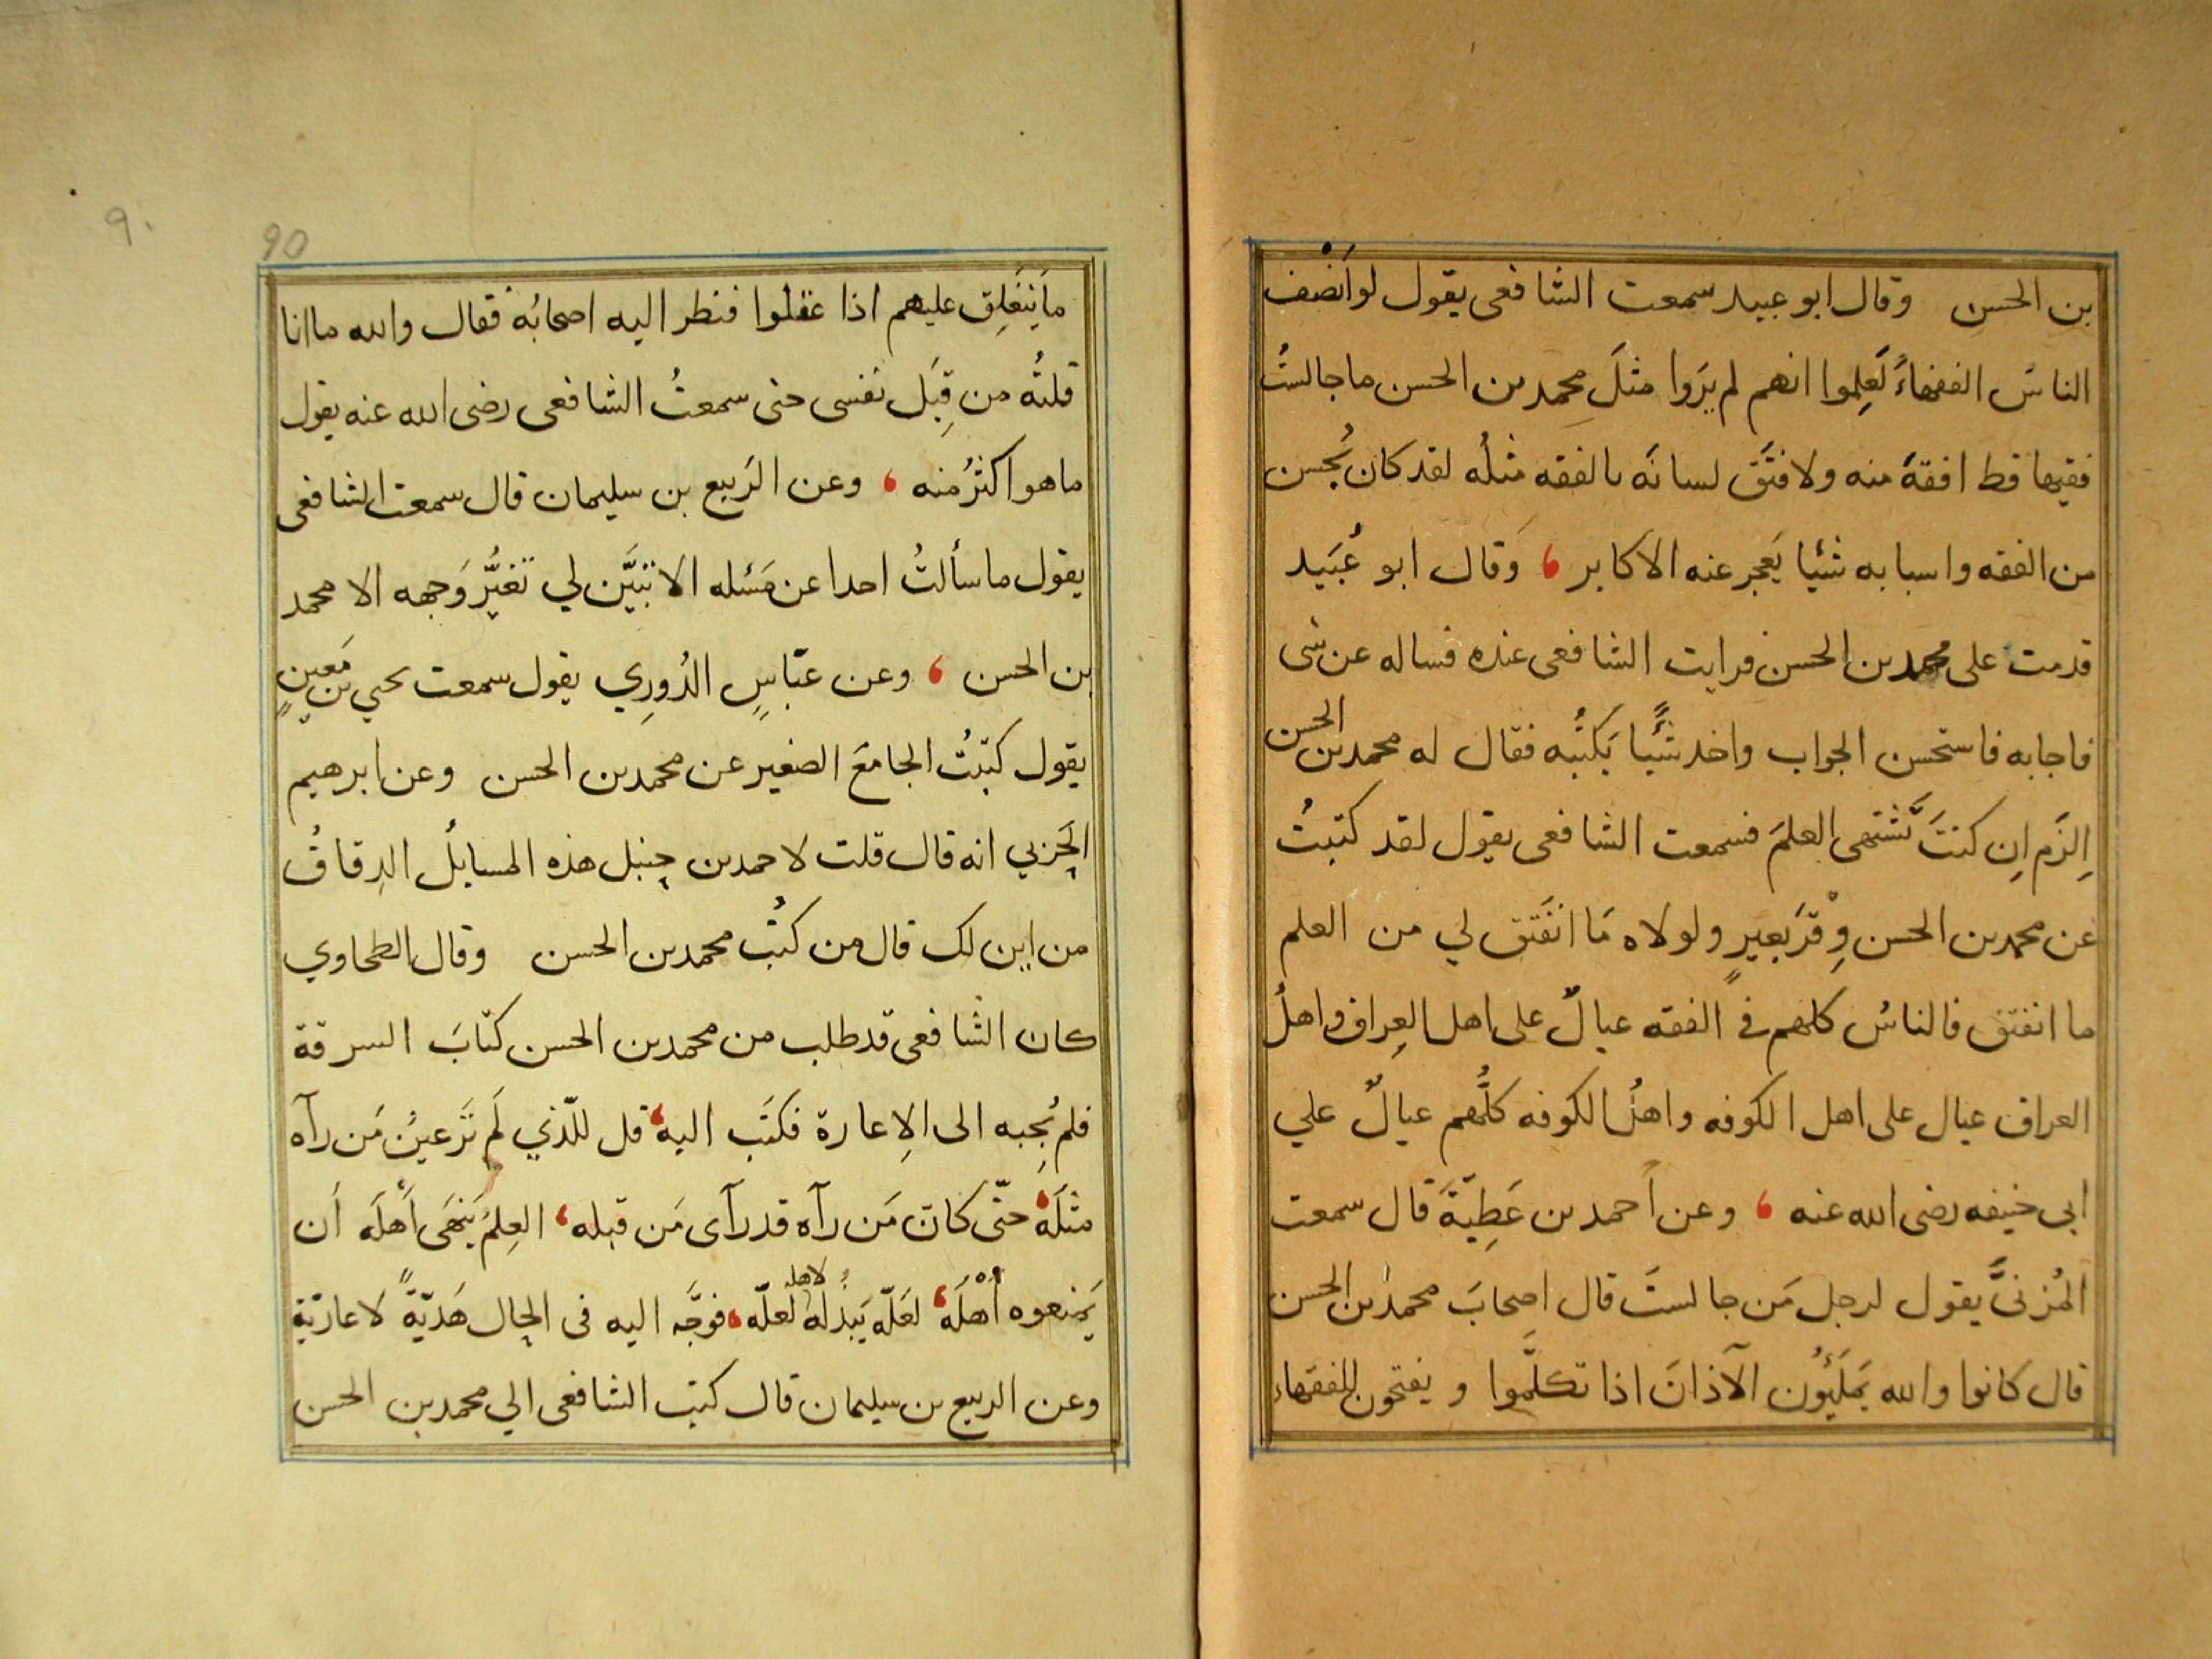 بن الحسن وقال ابو عبيد سمعت الشافعى يقول لو اَنْصف
الناسُ الفقهاءَ لَعلِموا انهم لم يَرَوا مثلَ محمد بن الحسن ما جالستُ
فقيها قط افقهَ منه ولا فتَق لسانَه بالفقه مثلُه لقد كان يُحسن
من الفقه واسبابه شيئا يَعجز عنه الاكابر ، وَقال ابو عُبَيد
قدمت على محمد بن الحسن فرايت الشافعى عنده فساله عن شى
فاجابه فاستحسن الجواب واخد شيًّا يَكتُبه فقال له محمد بن الحسن
اِلزَم اِن كنتَ تَشتهى العلمَ فسمعت الشافعى يقول لقد كتبتُ
عن محمد بن الحسن وِقْرَ بَعيرٍ ولولاه مَا انفَتق لي من العلم
ما انفتق فالناسُ كلهم في الفقه عيالٌ على اهل العِراق واهلُ
العراق عيال على اهل الكوفه واهلُ الكوفه كلُّهم عيالٌ علي
ابى حنيفه رضى الله عنه ، وعن اَحمد بن عَطِيّةَ قال سمعت
المُزنىَّ يقول لرجل مَن جالستَ قال اصحابَ محمد بن الحسن
قال كانوا والله يَملَئُون الآذانَ اذا تكلَّموا ويفتحون للفقهاء
٩٠
90
ما يَنغَلِق عليهم اذا عقلوا فنظر اليه اصحابُه فقال والله ما انا
قلتُه من قِبَل نفسى حتى سمعتُ الشافعى رضى الله عنه يقول
ما هو اكثرُ منه ، وعن الرَبيع بن سليمان قال سمعت الشافعى
يقول ما سألتُ احدا عن مَسَئله الا تبيَّن لي تغيُّر وَجهه الا محمد
بن الحسن ، وعن عبّاسٍ الدُورِي يقول سمعت يحيي بن مَعينٍ
يقول كتبتُ الجامعَ الصغير عن محمد بن الحسن وعن ابرهيم
الحَربي انه قال قلت لاحمد بن حنبل هذه المسايلُ الدِقاقُ
من اين لك قال من كُتُب محمد بن الحسن وقال الطحاوي
كان الشافعى قد طلب من محمد بن الحسن كتابَ السرقة
فلم يُجِبه الى الاِعارة فكتَب اليه ، قل للّذي لَم تَرَ عينُ مَن رآه
مثلَه ، حتّى كانَ مَن رآه قد رآى مَن قبله ، العِلمُ يَنهَى اَهْلَه اَن
يَمنعوه اَهْلَه ، لعَلّه يَبذُله لاهله لعلّه ، فوجَّه اليه فى الحال هَديّةً لا عاريّة
وعن الربيع بن سليمان قال كتب الشافعى الي محمد بن الحسن